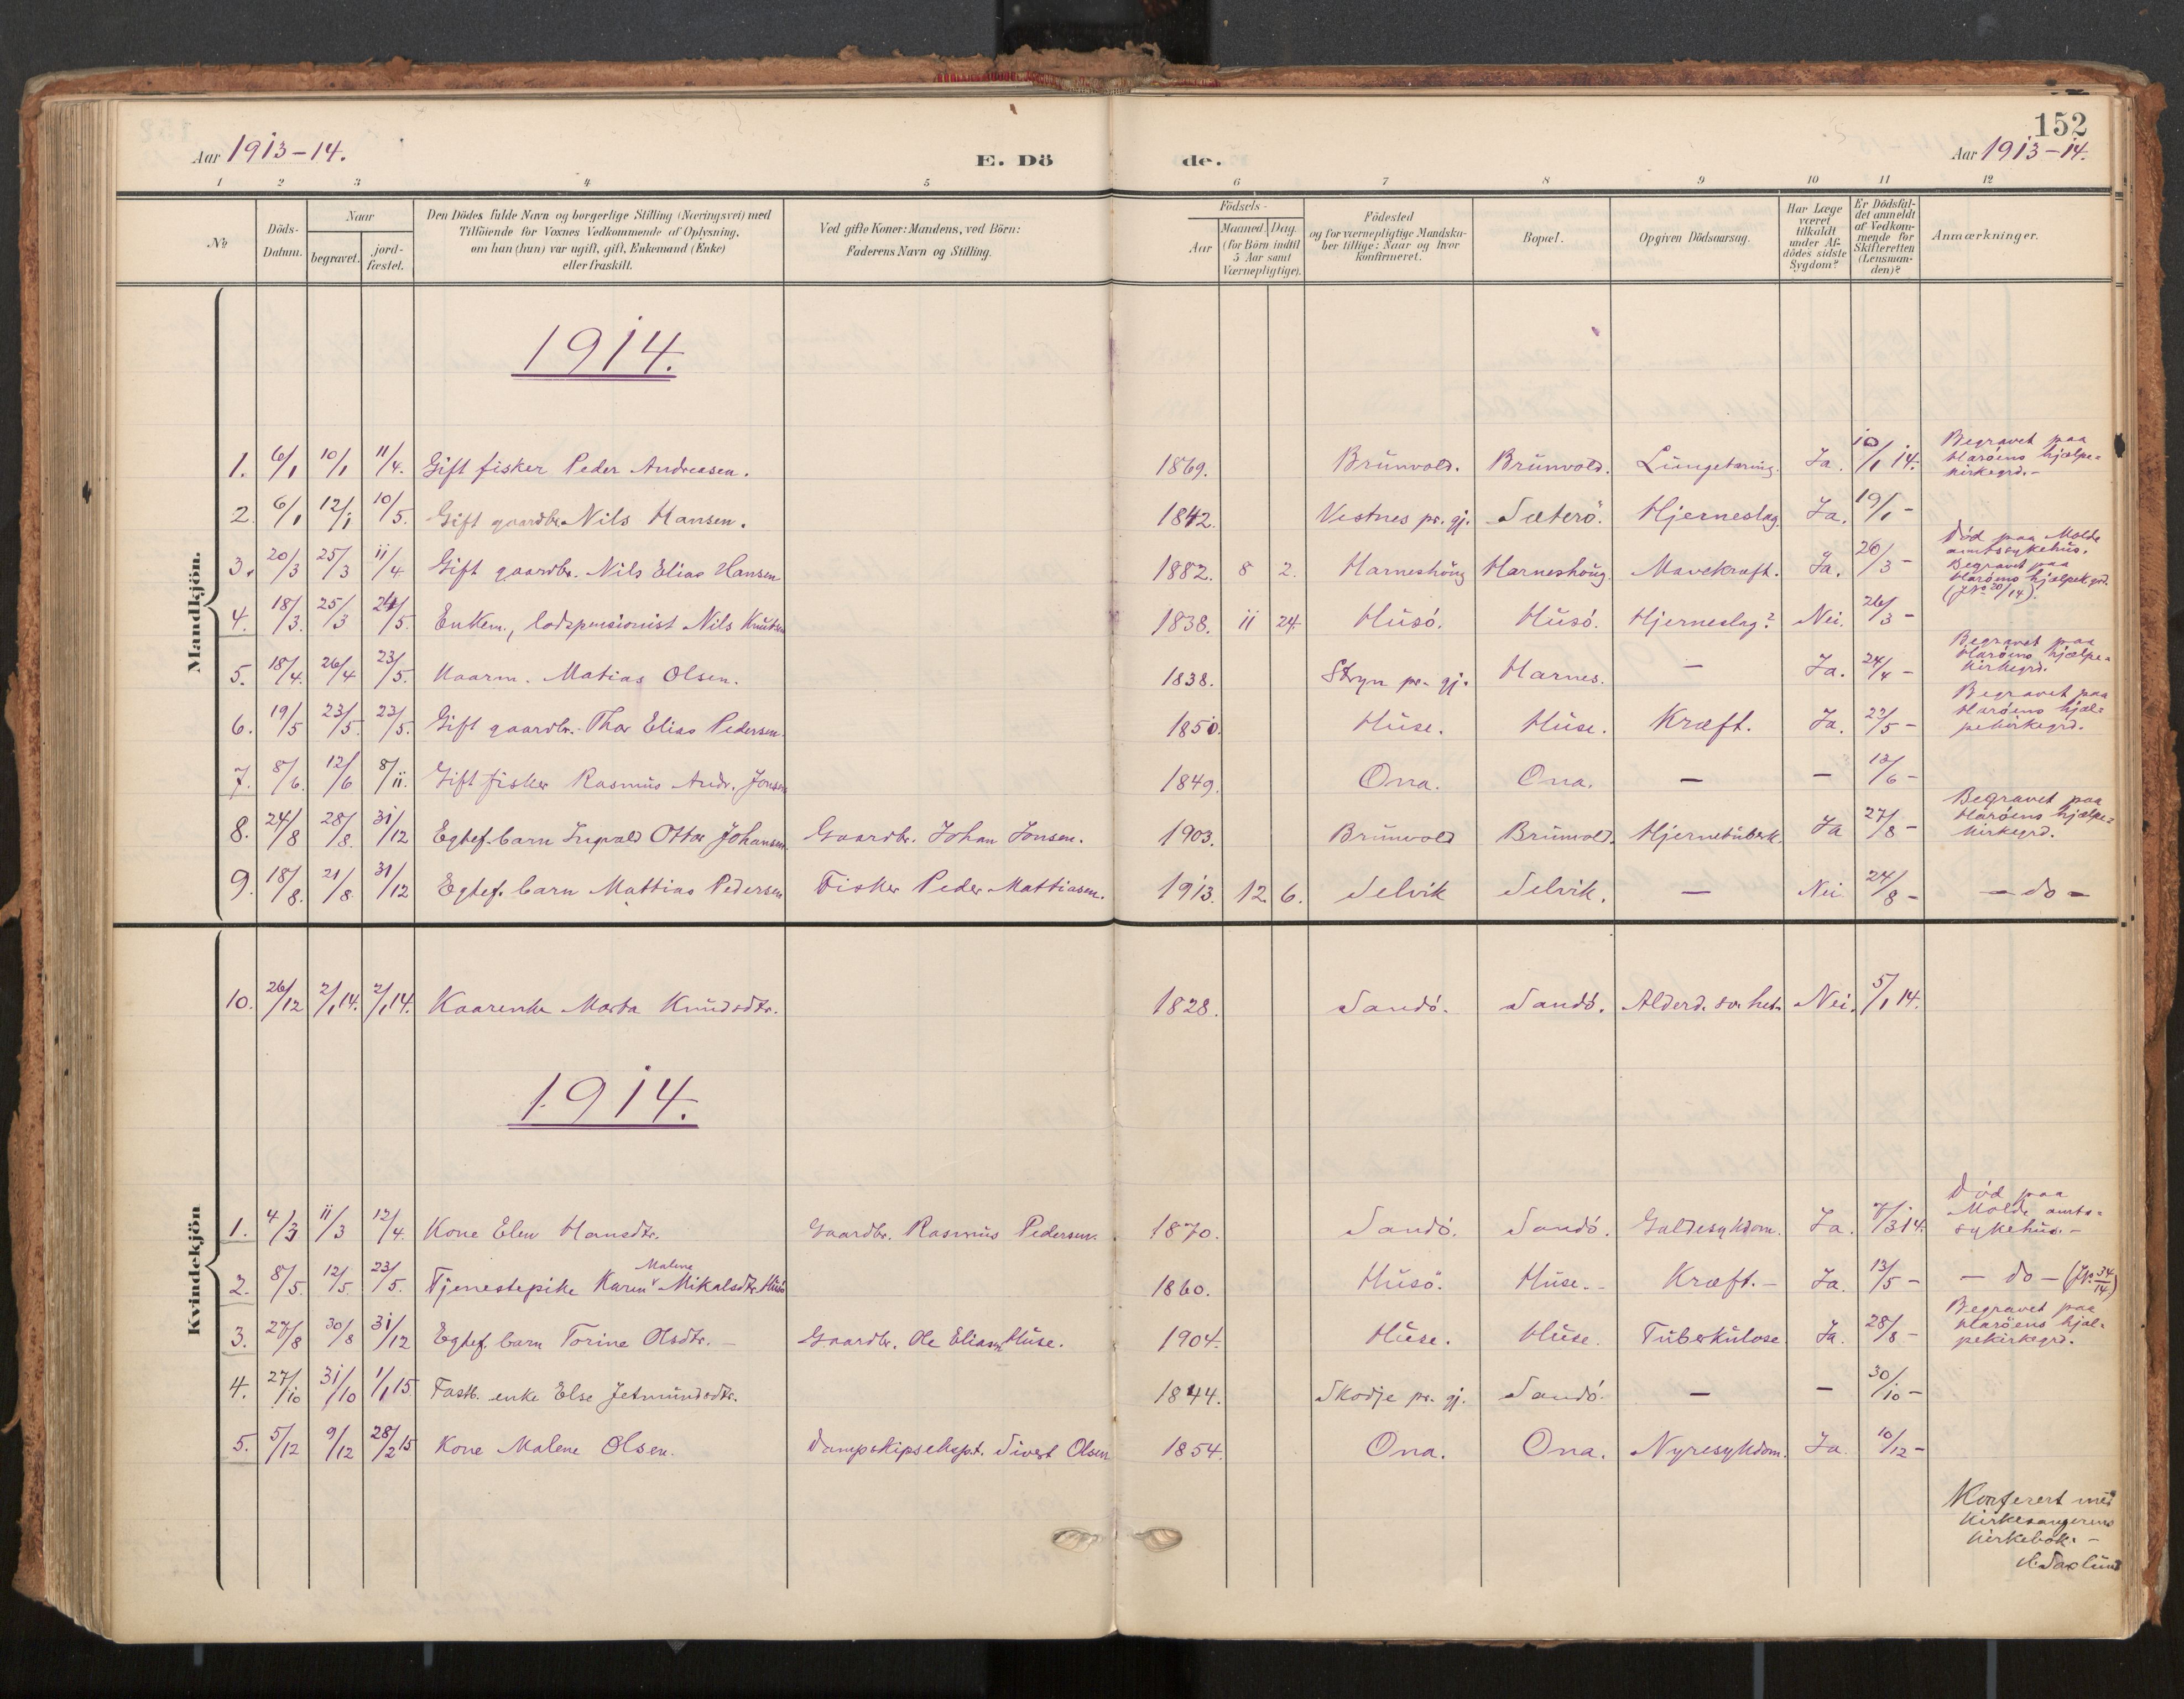 152
Aar 1913-14.
E. Dö de.
Aar 1913-14.
1 2 3 4 5 6 7 8 9 10 11 12
№
Döds-Datum.
Naar
begravet.
jord-fæstet.
Den Dödes fulde Navn og borgerlige Stilling (Næringsvei) med
Tilföiende for Voxnes Vedkommende af Oplysning,
om han (hun) var ugift, gift, Enkemand (Enke)
eller fraskilt.
Ved gifte Koner: Mandens, ved Börn:
Faderens Navn og Stilling.
Födsels-
Aar
Maaned. Dag.
(for Börn indtil
5 Aar samt
Værnepligtige).
Födested
og for værnepligtige Mandska-
ber tillige: Naar og hvor
konfirmeret.
Bopæl.
Opgiven Dödsaarsag.
Har Læge
været
tilkaldt
under Af-
dödes sidste
Sygdom?
Er Dödsfal-
det anmeldt
af Vedkom-
mende for
Skifteretten
(Lensman-
den)?
Anmærkninger.
Mandkjön.
1914.
1. 6/1 10/1 11/4. Gift fisker Peder Andreasen. 1869. Brünvold. Brünvold. Lüngetæring. Ja. 10/1 14. Begravet paa Haröens hjælpe-kirkegrd.-
2. 6/1 12/1 10/5. Gift gaardbr. Nils Hansen. 1842. Vestnes pr. gj. Sæterö. Hjerneslag. Ja. 19/1 -
3. 20/3 25/3 11/4 Gift gaardbr. Nils Elias Hansen 1882. 8 2. Harneshöug Harneshöug. Mavekræft. Ja. 26/3 - Död paa Molde amtssykehüs. Begravet paa Haröens hjælpek.grd. (J№ 20/14).
4. 18/3. 25/3 24/5. Enkem., lodspensionist Nils Knütsen 1838. 11 24. Hüsö. Hüsö. Hjerneslag? Nei. 26/3 -
5. 18/4. 26/4 23/5. Kaarm. Matias Olsen. 1838. Stryn pr. gj. Harnes. - Ja. 24/4 - Begravet paa Haröens hjælpe-kirkegrd.
6. 19/5 23/5. 23/5. Gift gaardbr. Thor Elias Pedersen. 1850. Hüse. Hüse. Kræft. Ja. 22/5 - Begravet paa Haröens hjæl-pekirkegrd.
7. 8/6. 12/6 8/11. Gift fisker Rasmüs Andr. Jonsen 1849. Ona. Ona. - - 12/6 -
8. 24/8 28/8. 31/12 Egtef. barn Ingvald Ottar Johansen. Gaardbr. Johan Jonsen. 1903. Brünvold Brünvold. Hjernetüberk. Ja 27/8 - Begravet paa Haröens hjælpe-kirkegrd.
9. 18/8. 21/8 31/12 Egtef. barn Mattias Pedersen Fisker Peder Mattiasen. 1913. 12. 6. Selvik Selvik. - Nei 24/8 - - do -
Kvindekjön
10. 26/12 2/1 14. 2/1 14. Kaarenke Marta Knüdsdtr. 1828. Sandö. Sandö. Alderd. svakhet. Nei. 5/1 14.
1914.
1. 4/3 11/3 12/4. Kone Elen Hansdtr. Gaardbr. Rasmüs Pedersen. 1870. Sandö. Sandö. Galdesykdom. Ja. 7/3 14. Död paa Molde amts-sykehüs.-
2. 8/5. 12/5. 23/5. Tjenestepike Karen Malene Mikalsdtr. Hüsö 1860. Hüsö. Hüse. Kræft.- Ja. 13/5 - - do - (J№ 34/14)
3. 27/8 30/8 31/12 Egtef. barn Torine Olsdtr. - Gaardbr. Ole Elias Hüse. 1904. Hüse. Hüse. Tüberkülose Ja. 28/8 - Begravet paa Haröens hjæl-pekirkegrd.
4. 27/10 31/10 1/1 15 Fattb. enke Else Jetmündsdtr. 1844. Skodje pr. gj. Sandö. - - 30/10 -
5. 5/12 9/12 28/2 15 Kone Malene Olsen. Dampskipsekspt. Sivert Olsen 1854. Ona. Ona. Nyresykdom. Ja. 10/12 -
Konferert med
kirkesangerens
kirkebok. -
Saxlünd